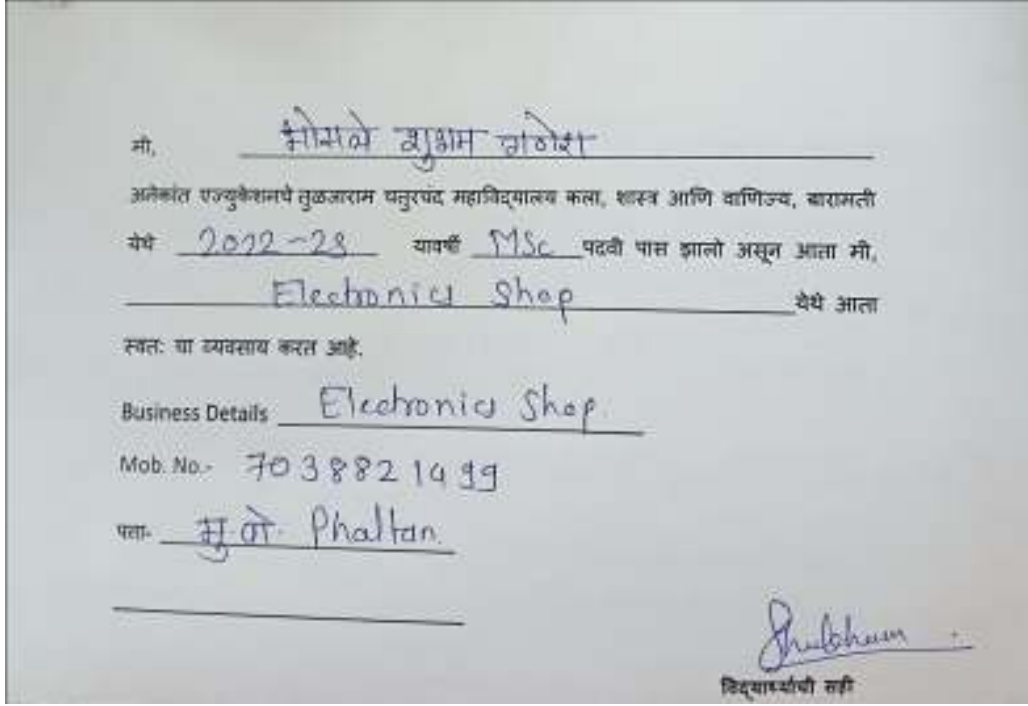 मी, भोसले शुभम गणेश
अनेकांत एज्युकेशनचे तुळजाराम चतुरचंद महाविद्यालय कला, शास्त्र आणि वाणिज्य, बारामती
येथे 2022-23 यावर्षी MSc पदवी पास झालो असून आता मी,
Electronics Shop येथे आता
स्वतः चा व्यवसाय करत आहे.
Business Details Electronics Shop.
Mob. No.- 7038821499
पत्ता- मु.पो. Phaltan.
Shubham
विद्यार्थ्याची सही